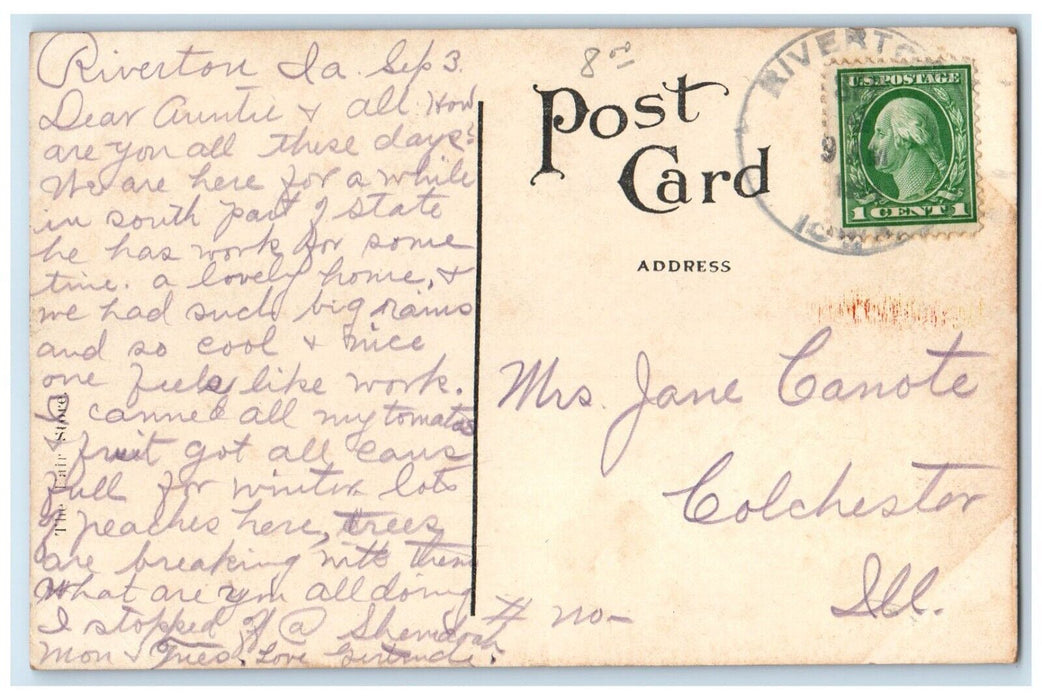 Riverton Ia. Sep 3.
Dear Auntie & all. How
are you all these days?
We are here for a while
in south part of state
he has work for some
time. a lovely home, &
we had such big rains
and so cool & nice
one feels like work.
I canned all my tomatoes
& fruit got all cans
full for winter lots
of peaches here, trees
are breaking with them
What are you all doing
I stopped off @ Shenidoah
Mon & Tues. Love Gertrude.
The Fair Store
8 00
Post
Card
ADDRESS
RIVERTO
IOWA
9
U.S. POSTAGE
1 CENT 1
Mrs. Jane Canote
Colchester
Ill.
# no-